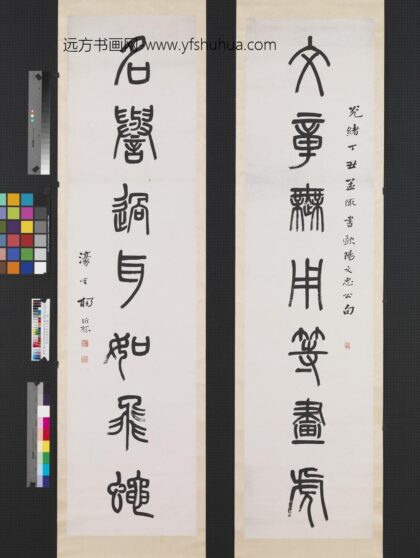 远方书画网 www.yfshuhua.com
文章無用等畫虎
光緒丁丑孟書歐陽文忠公句
名譽過耳如飛蠅
濠叟楊沂孫